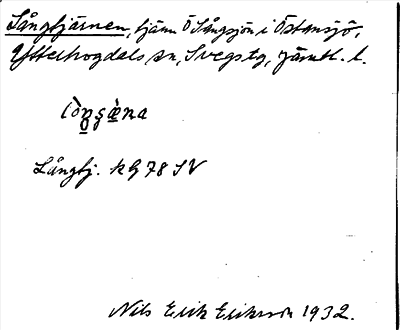 Långtjärnen, tjärn Ö Långsjön i Östansjö,
Ytterhogdals sn, Svegs tg, Jämtl. l.
Långtj. kG 78 SV
Nils Erik Eriksson 1932.